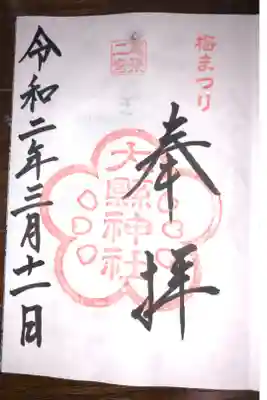 梅まつり
奉拝
大縣神社
令和二年三月十一日